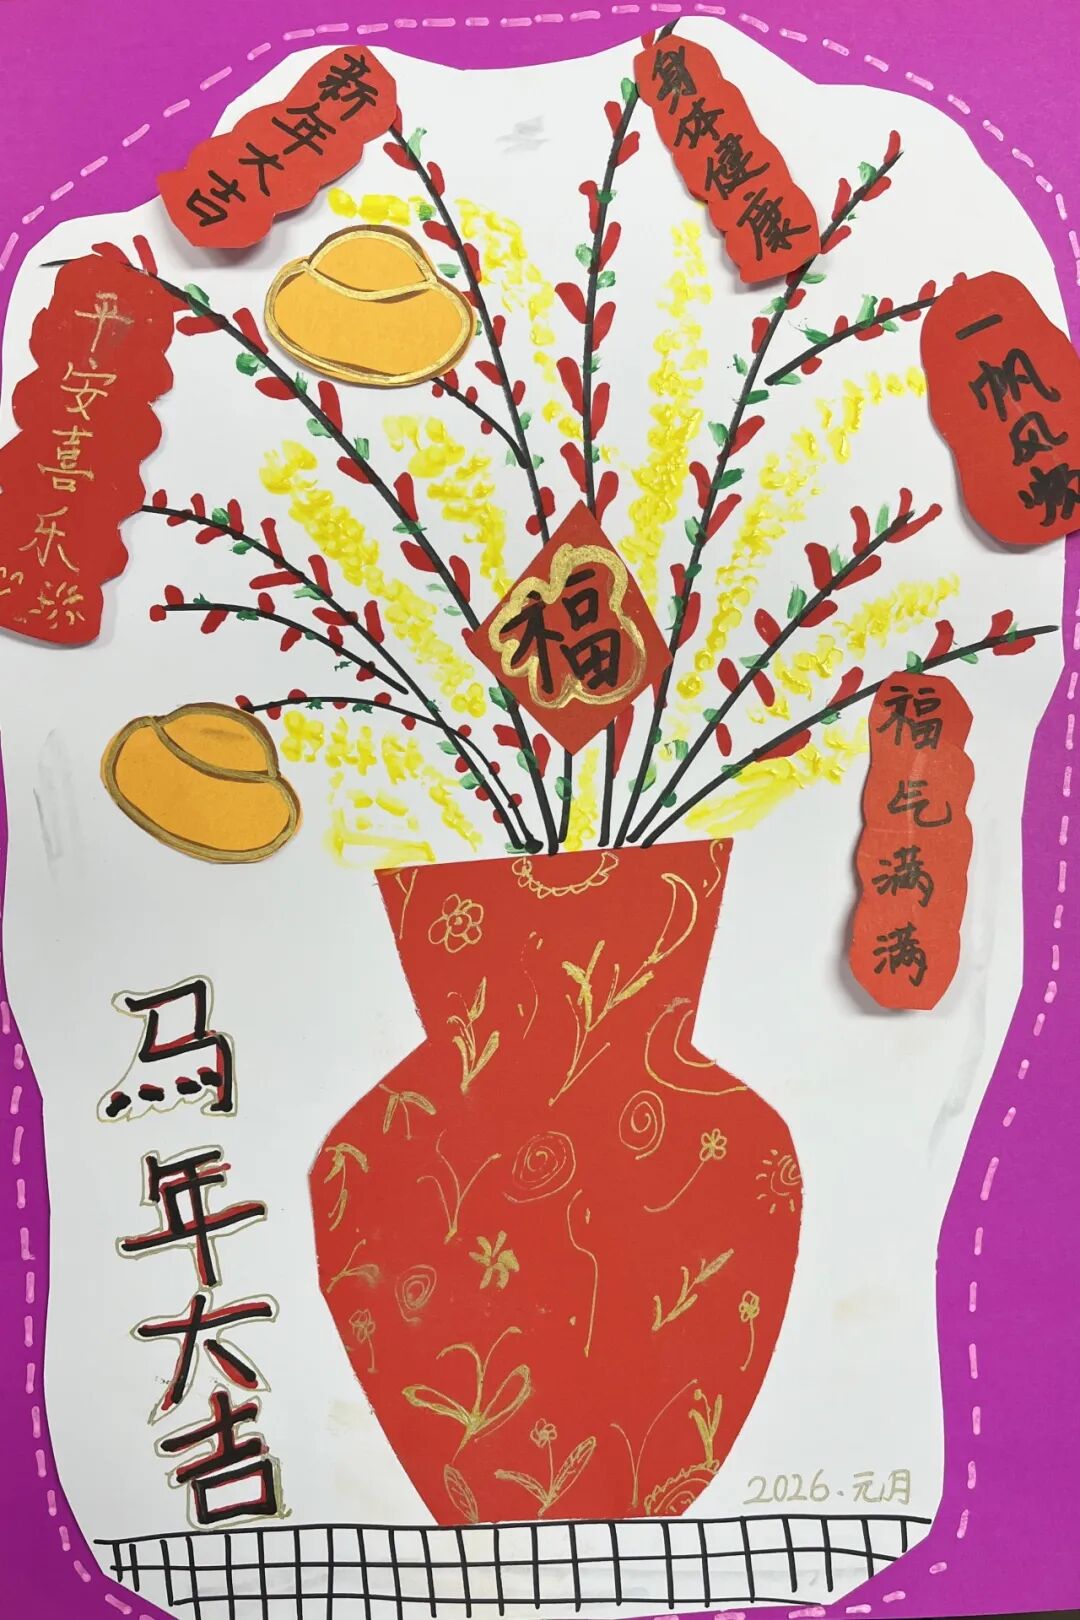 新年大吉
身体健康
平安喜乐
一帆风顺
福
福气满满
马年大吉
2026.元月